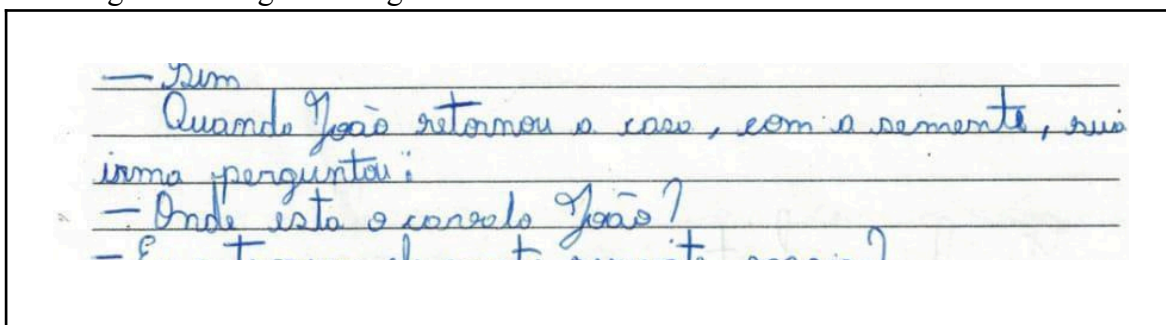 — Sim
Quando João retornou a casa, com a semente, sua
irma perguntou:
— Onde esta o cavalo João?